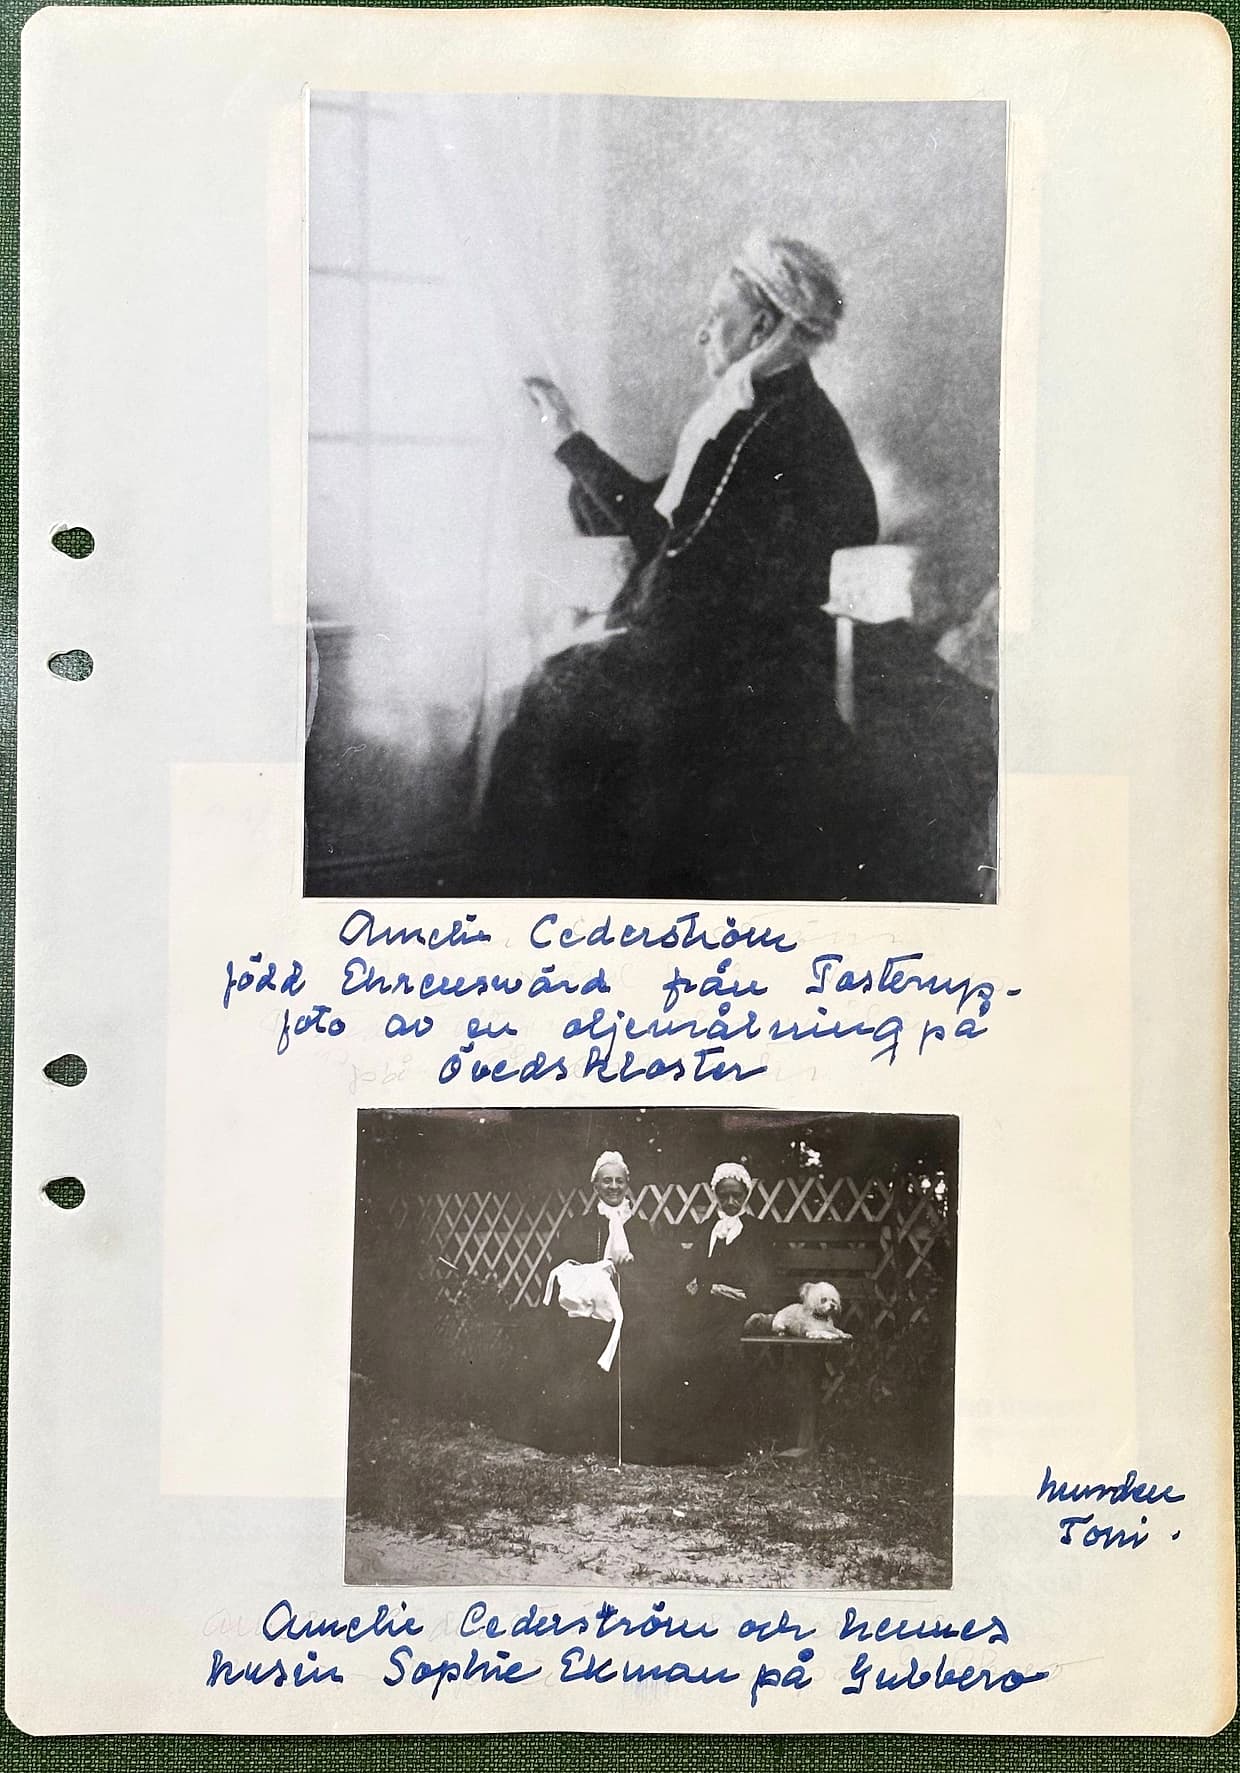 Amelie Cederström
född Ehrensvärd från Tosterup-
foto av en oljemålning på
Övedskloster
hunden
Toni.
Amelie Cederström och hennes
kusin Sophie Ekman på Gubbero